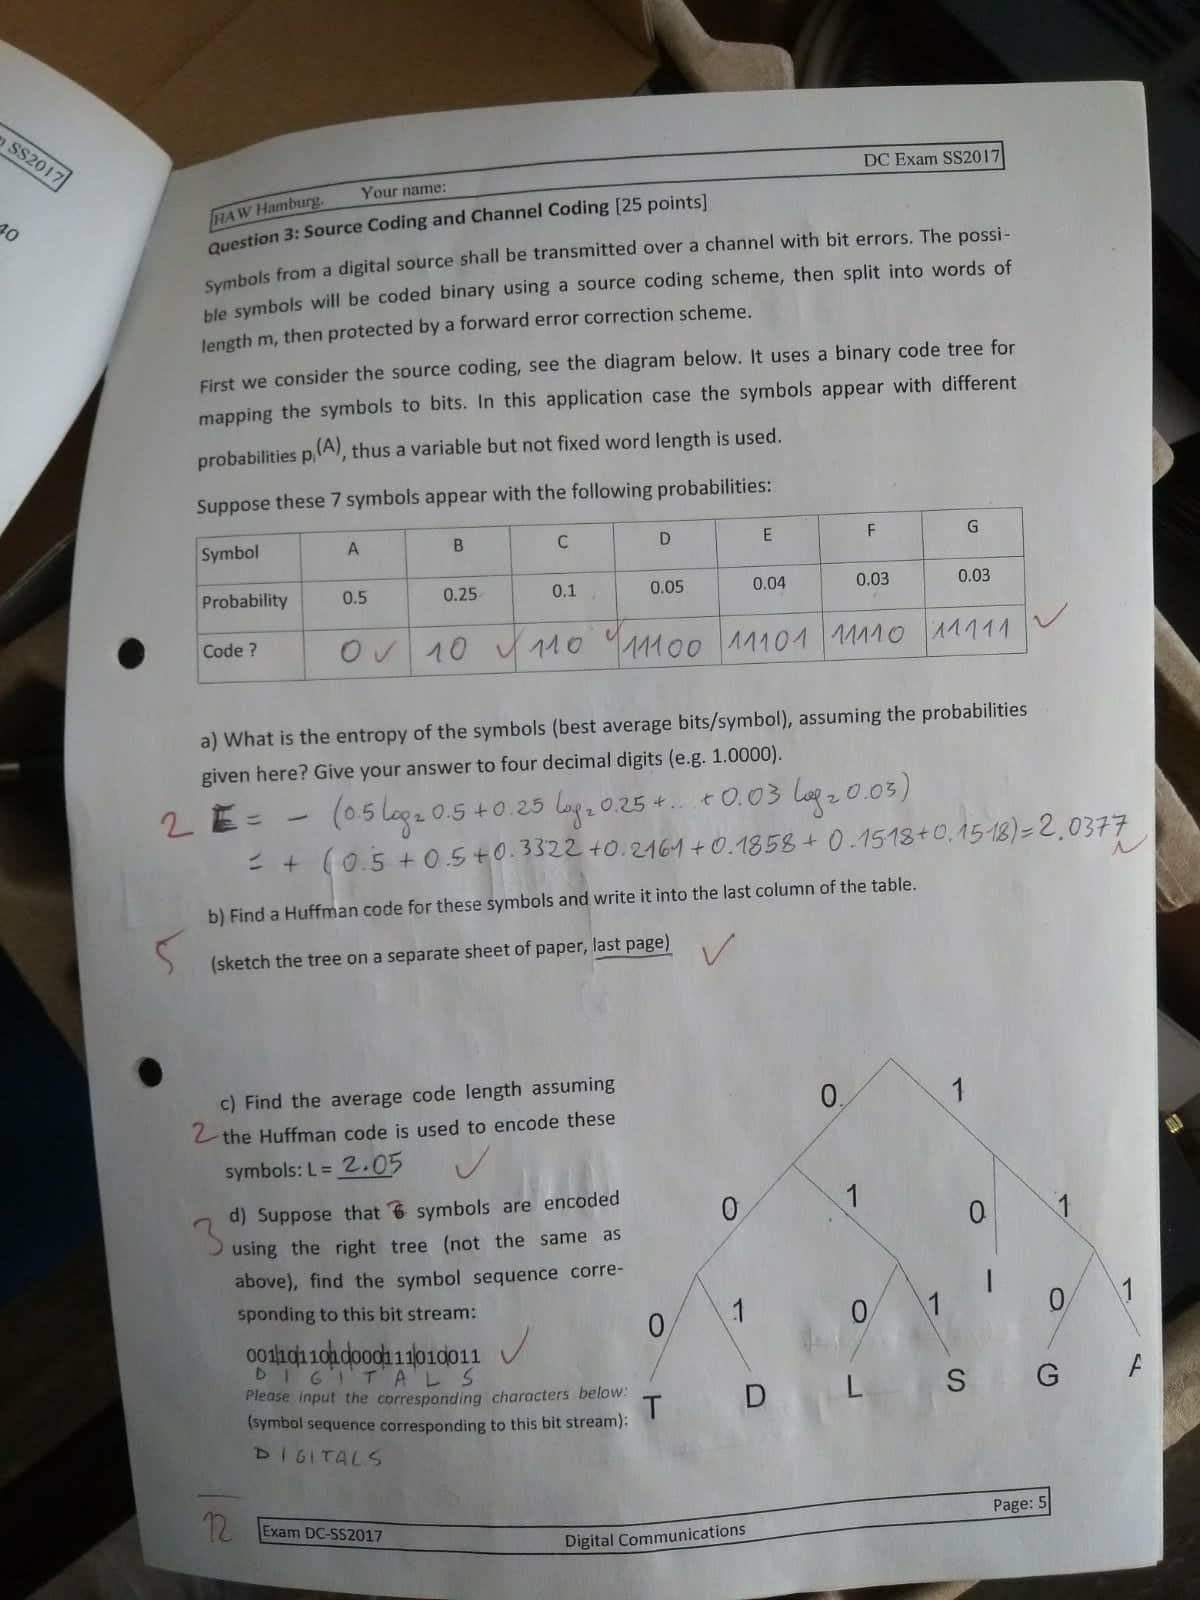 m SS2017
40
HAW Hamburg, Your name: DC Exam SS2017
Question 3: Source Coding and Channel Coding [25 points]
Symbols from a digital source shall be transmitted over a channel with bit errors. The possi-
ble symbols will be coded binary using a source coding scheme, then split into words of
length m, then protected by a forward error correction scheme.
First we consider the source coding, see the diagram below. It uses a binary code tree for
mapping the symbols to bits. In this application case the symbols appear with different
probabilities pᵢ(A), thus a variable but not fixed word length is used.
Suppose these 7 symbols appear with the following probabilities:
Symbol A B C D E F G
Probability 0.5 0.25 0.1 0.05 0.04 0.03 0.03
Code ? 0 ✓ 10 ✓ 110 ✓ 11100 11101 11110 11111 ✓
a) What is the entropy of the symbols (best average bits/symbol), assuming the probabilities
given here? Give your answer to four decimal digits (e.g. 1.0000).
2 E = - (0.5 log₂ 0.5 + 0.25 log₂ 0.25 + .. + 0.03 log₂ 0.03)
= + (0.5 + 0.5 + 0.3322 + 0.2161 + 0.1858 + 0.1518 + 0.1518) = 2.0377 ✓
b) Find a Huffman code for these symbols and write it into the last column of the table.
5 (sketch the tree on a separate sheet of paper, last page) ✓
c) Find the average code length assuming
2 the Huffman code is used to encode these
symbols: L = 2.05 ✓
3 d) Suppose that 6 symbols are encoded
using the right tree (not the same as
above), find the symbol sequence corre-
sponding to this bit stream:
001|10|110|10|000|111|010|011 ✓
D I G I T A L S
Please input the corresponding characters below:
(symbol sequence corresponding to this bit stream):
DIGITALS
0 1
0 1 0 1
0 1 0 1 I 0 1
T D L S G A
12
Exam DC-SS2017 Digital Communications Page: 5